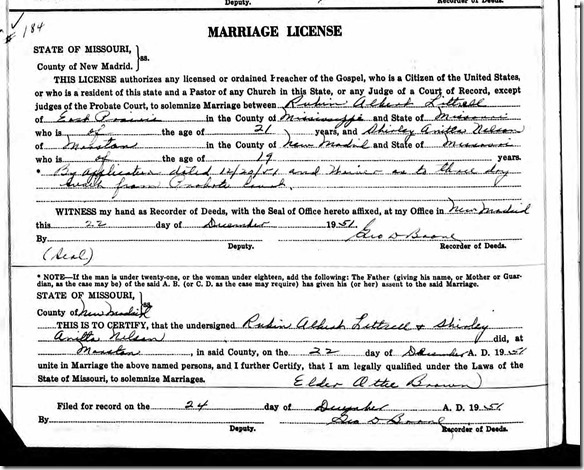 Deputy. Recorder of Deeds.
# 184
MARRIAGE LICENSE
STATE OF MISSOURI, } ss.
County of New Madrid.
THIS LICENSE authorizes any licensed or ordained Preacher of the Gospel, who is a Citizen of the United States,
or who is a resident of this state and a Pastor of any Church in this State, or any Judge of a Court of Record, except
judges of the Probate Court, to solemnize Marriage between Rubin Albert Littrell
of East Prairie in the County of Mississippi and State of Missouri
who is of the age of 21 years, and Shirley Anitta Nelson
of Marston in the County of New Madrid and State of Missouri
who is of the age of 19 years.
* By application dated and Waiver as to three day
from Probate Court.
WITNESS my hand as Recorder of Deeds, with the Seal of Office hereto affixed, at my Office in New Madrid
this 22 day of December 1951.
By Geo D Boone
(Seal) Deputy. Recorder of Deeds.
* NOTE—If the man is under twenty-one, or the woman under eighteen, add the following: The Father (giving his name, or Mother or Guar-
dian, as the case may be) of the said A. B. (or C. D. as the case may require) has given his (or her) assent to the said Marriage.
STATE OF MISSOURI, } ss.
County of New Madrid
THIS IS TO CERTIFY, that the undersigned Rubin Albert Littrell & Shirley
Anitta Nelson did, at
Marston, in said County, on the 22 day of December A. D. 1951
unite in Marriage the above named persons, and I further Certify, that I am legally qualified under the Laws of the
State of Missouri, to solemnize Marriages. Elder Brown
Filed for record on the 24 day of December A. D. 1951.
By Geo D Boone
Deputy. Recorder of Deeds.